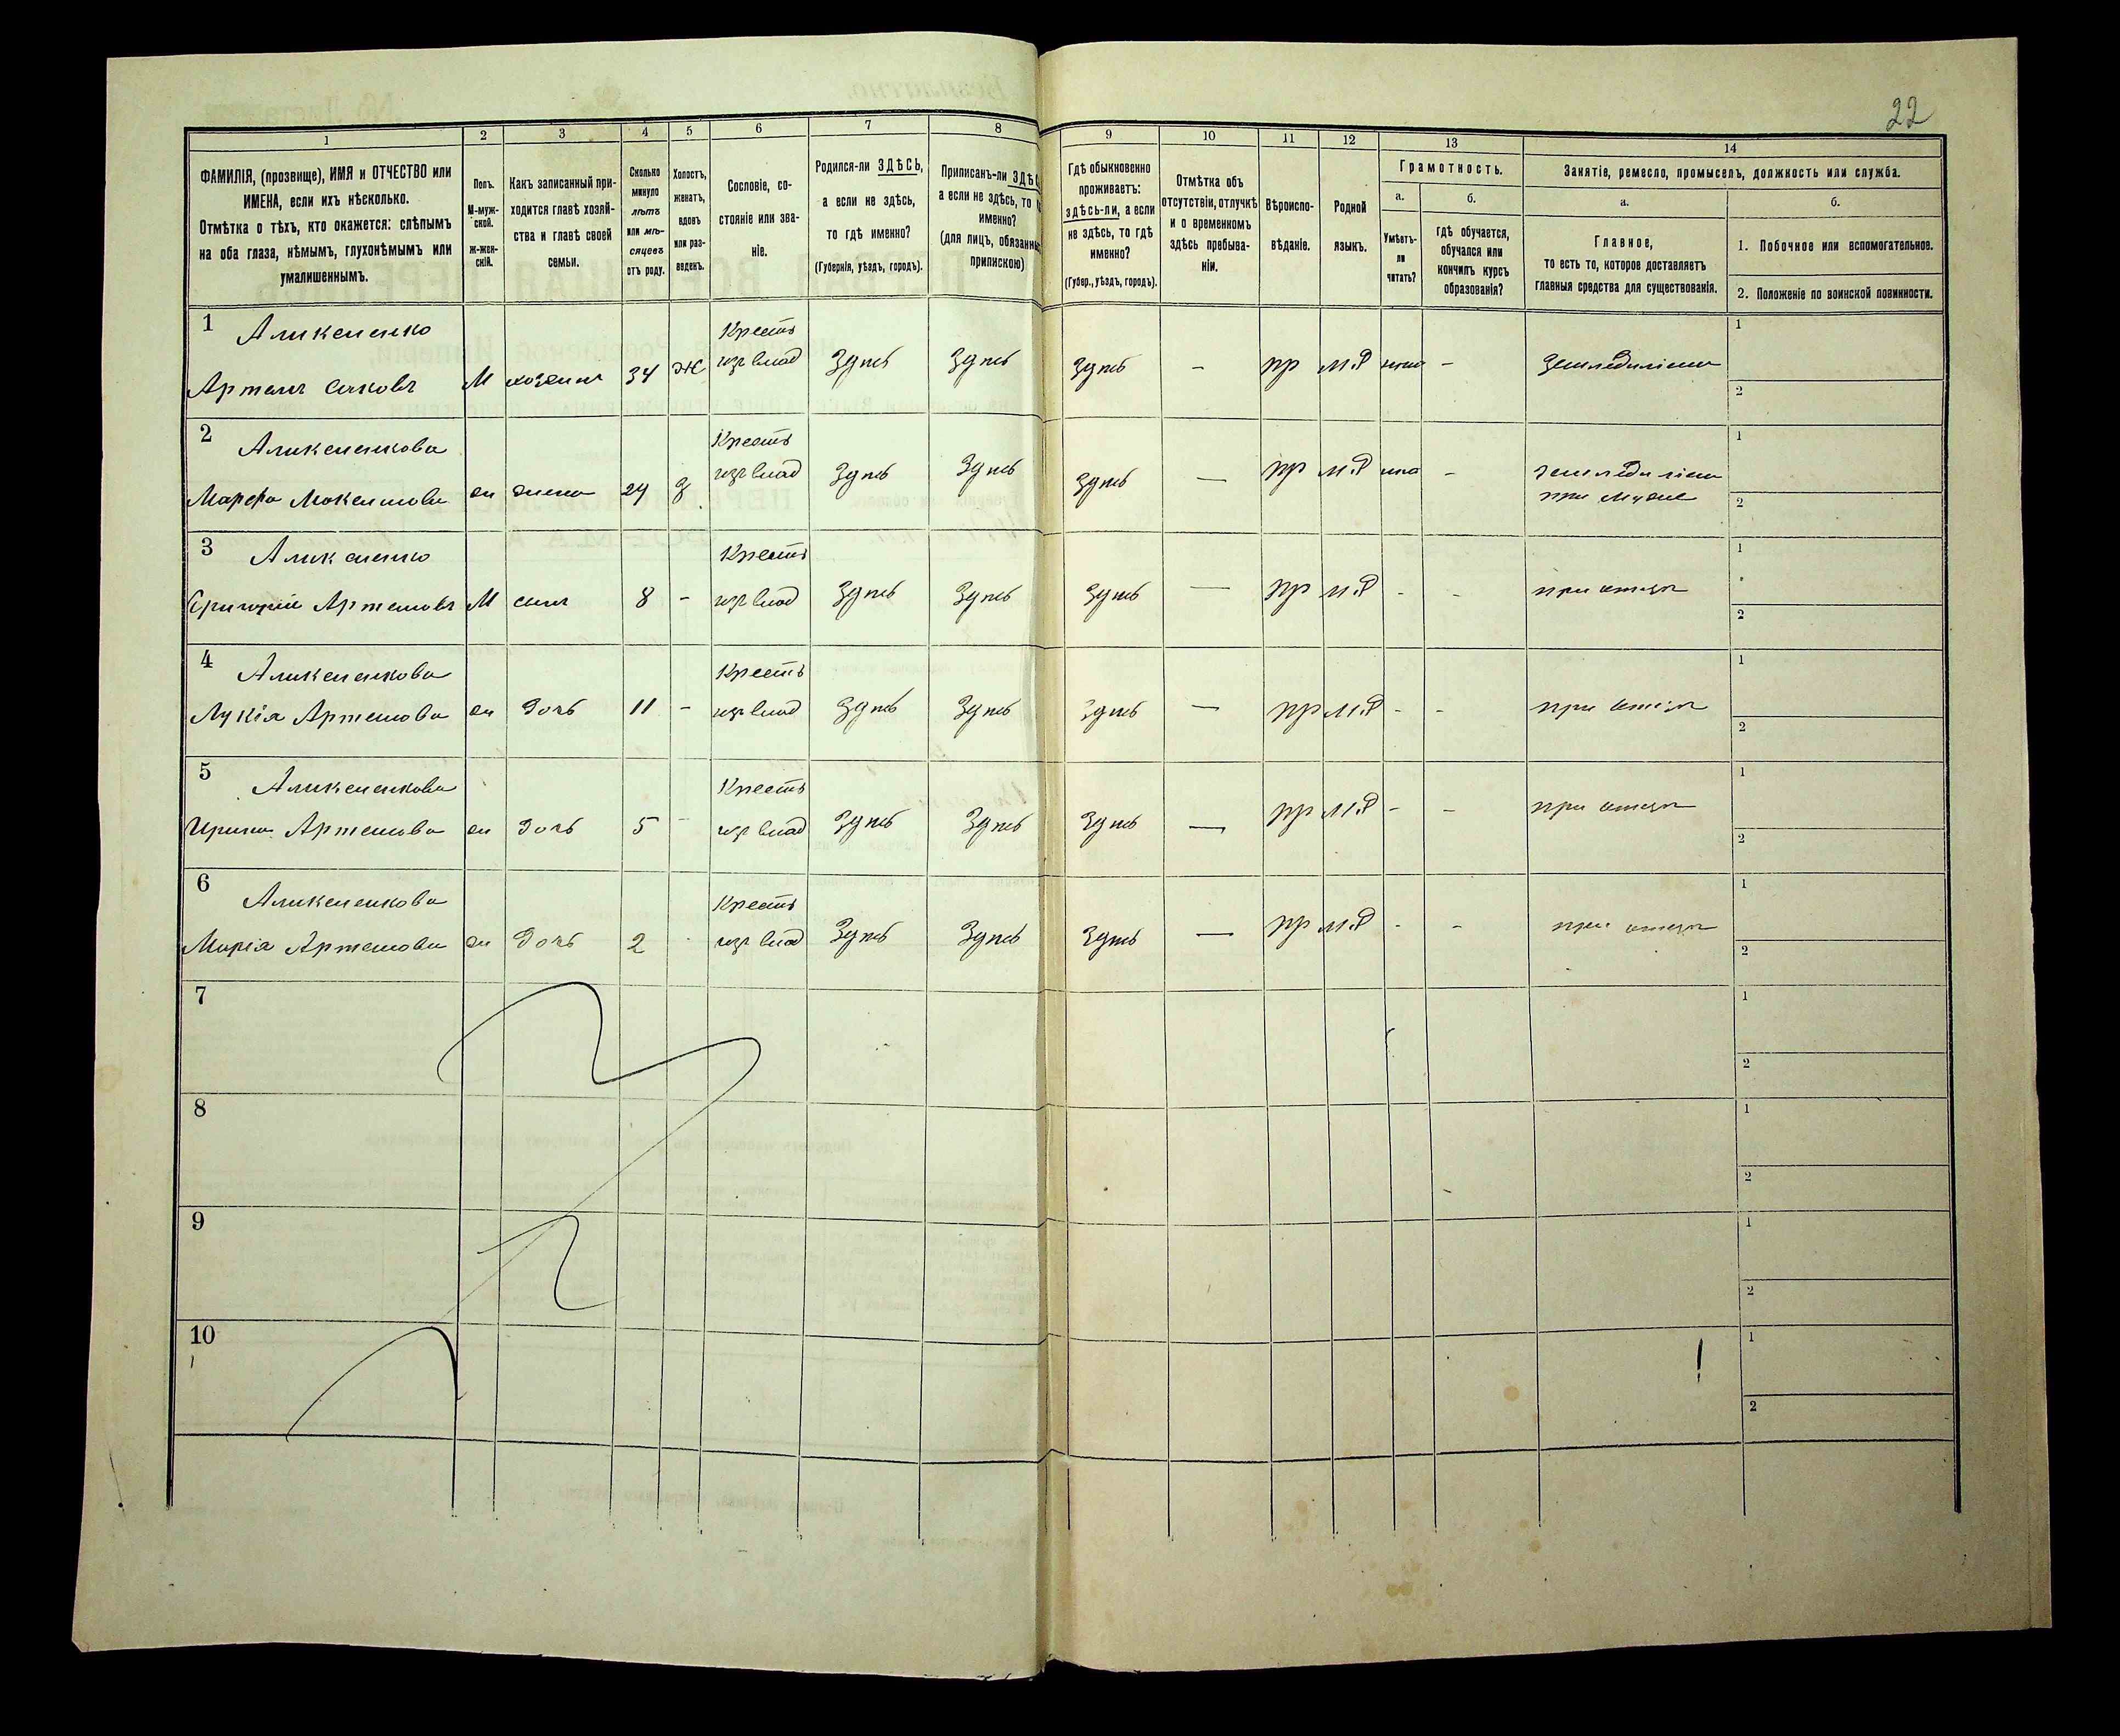 22
1
2
3
4
5
6
7
8
9
10
11
12
13
14
ФАМИЛІЯ, (прозвище), ИМЯ и ОТЧЕСТВО или
ИМЕНА, если ихъ нѣсколько.
Отмѣтка о тѣхъ, кто окажется: слѣпымъ
на оба глаза, нѣмымъ, глухонѣмымъ или
умалишеннымъ.
Полъ.
М-муж-
ской.
ж-жен-
скій.
Какъ записанный при-
ходится главѣ хозяй-
ства и главѣ своей
семьи.
Сколько
минуло
лѣтъ
или мѣ-
сяцевъ
отъ роду.
Холостъ,
женатъ,
вдовъ
или раз-
веденъ.
Сословіе, со-
стояніе или зва-
ніе.
Родился-ли ЗДѢСЬ,
а если не здѣсь,
то гдѣ именно?
(Губернія, уѣздъ, городъ).
Приписанъ-ли
а если не здѣсь, то
именно?
(для лицъ,
припискою)
Гдѣ обыкновенно
проживаетъ:
здѣсь-ли, а если
не здѣсь, то гдѣ
именно?
(Губер., уѣздъ, городъ).
Отмѣтка объ
отсутствіи, отлучкѣ
и о временномъ
здѣсь пребыва-
ніи.
Вѣроиспо-
вѣданіе.
Родной
языкъ.
Грамотность.
а.
Умѣетъ-
ли
читать?
б.
гдѣ обучается,
обучался или
кончилъ курсъ
образованія?
Занятіе, ремесло, промыселъ, должность или служба.
а.
Главное,
то есть то, которое доставляетъ
главныя средства для существованія.
б.
1. Побочное или вспомогательное.
2. Положеніе по воинской повинности.
1
Крестъ
Артемъ М хозяинъ 34 Ж изъ влад Здѣсь Здѣсь Здѣсь - пр М.Р - Земледѣліемъ
1
2
2
Крестъ
Марфа ж жена 29 З изъ влад Здѣсь Здѣсь Здѣсь — пр М.Р - земледѣліемъ
при мужѣ
1
2
3
Крестъ
Григорій Артемовъ М сынъ 8 - изъ влад Здѣсь Здѣсь Здѣсь — пр М.Р - - при отцѣ
1
2
4
Крестъ
Лукія Артемова ж дочь 11 - изъ влад Здѣсь Здѣсь Здѣсь — пр М.Р - - при отцѣ
1
2
5
Крестъ
Ирина Артемова ж дочь 5 - изъ влад Здѣсь Здѣсь Здѣсь — пр М.Р - - при отцѣ
1
2
6
Крестъ
Марія Артемова ж дочь 2 - изъ влад Здѣсь Здѣсь Здѣсь — пр М.Р - - при отцѣ
1
2
7
1
2
8
1
2
9
1
2
10
1
2